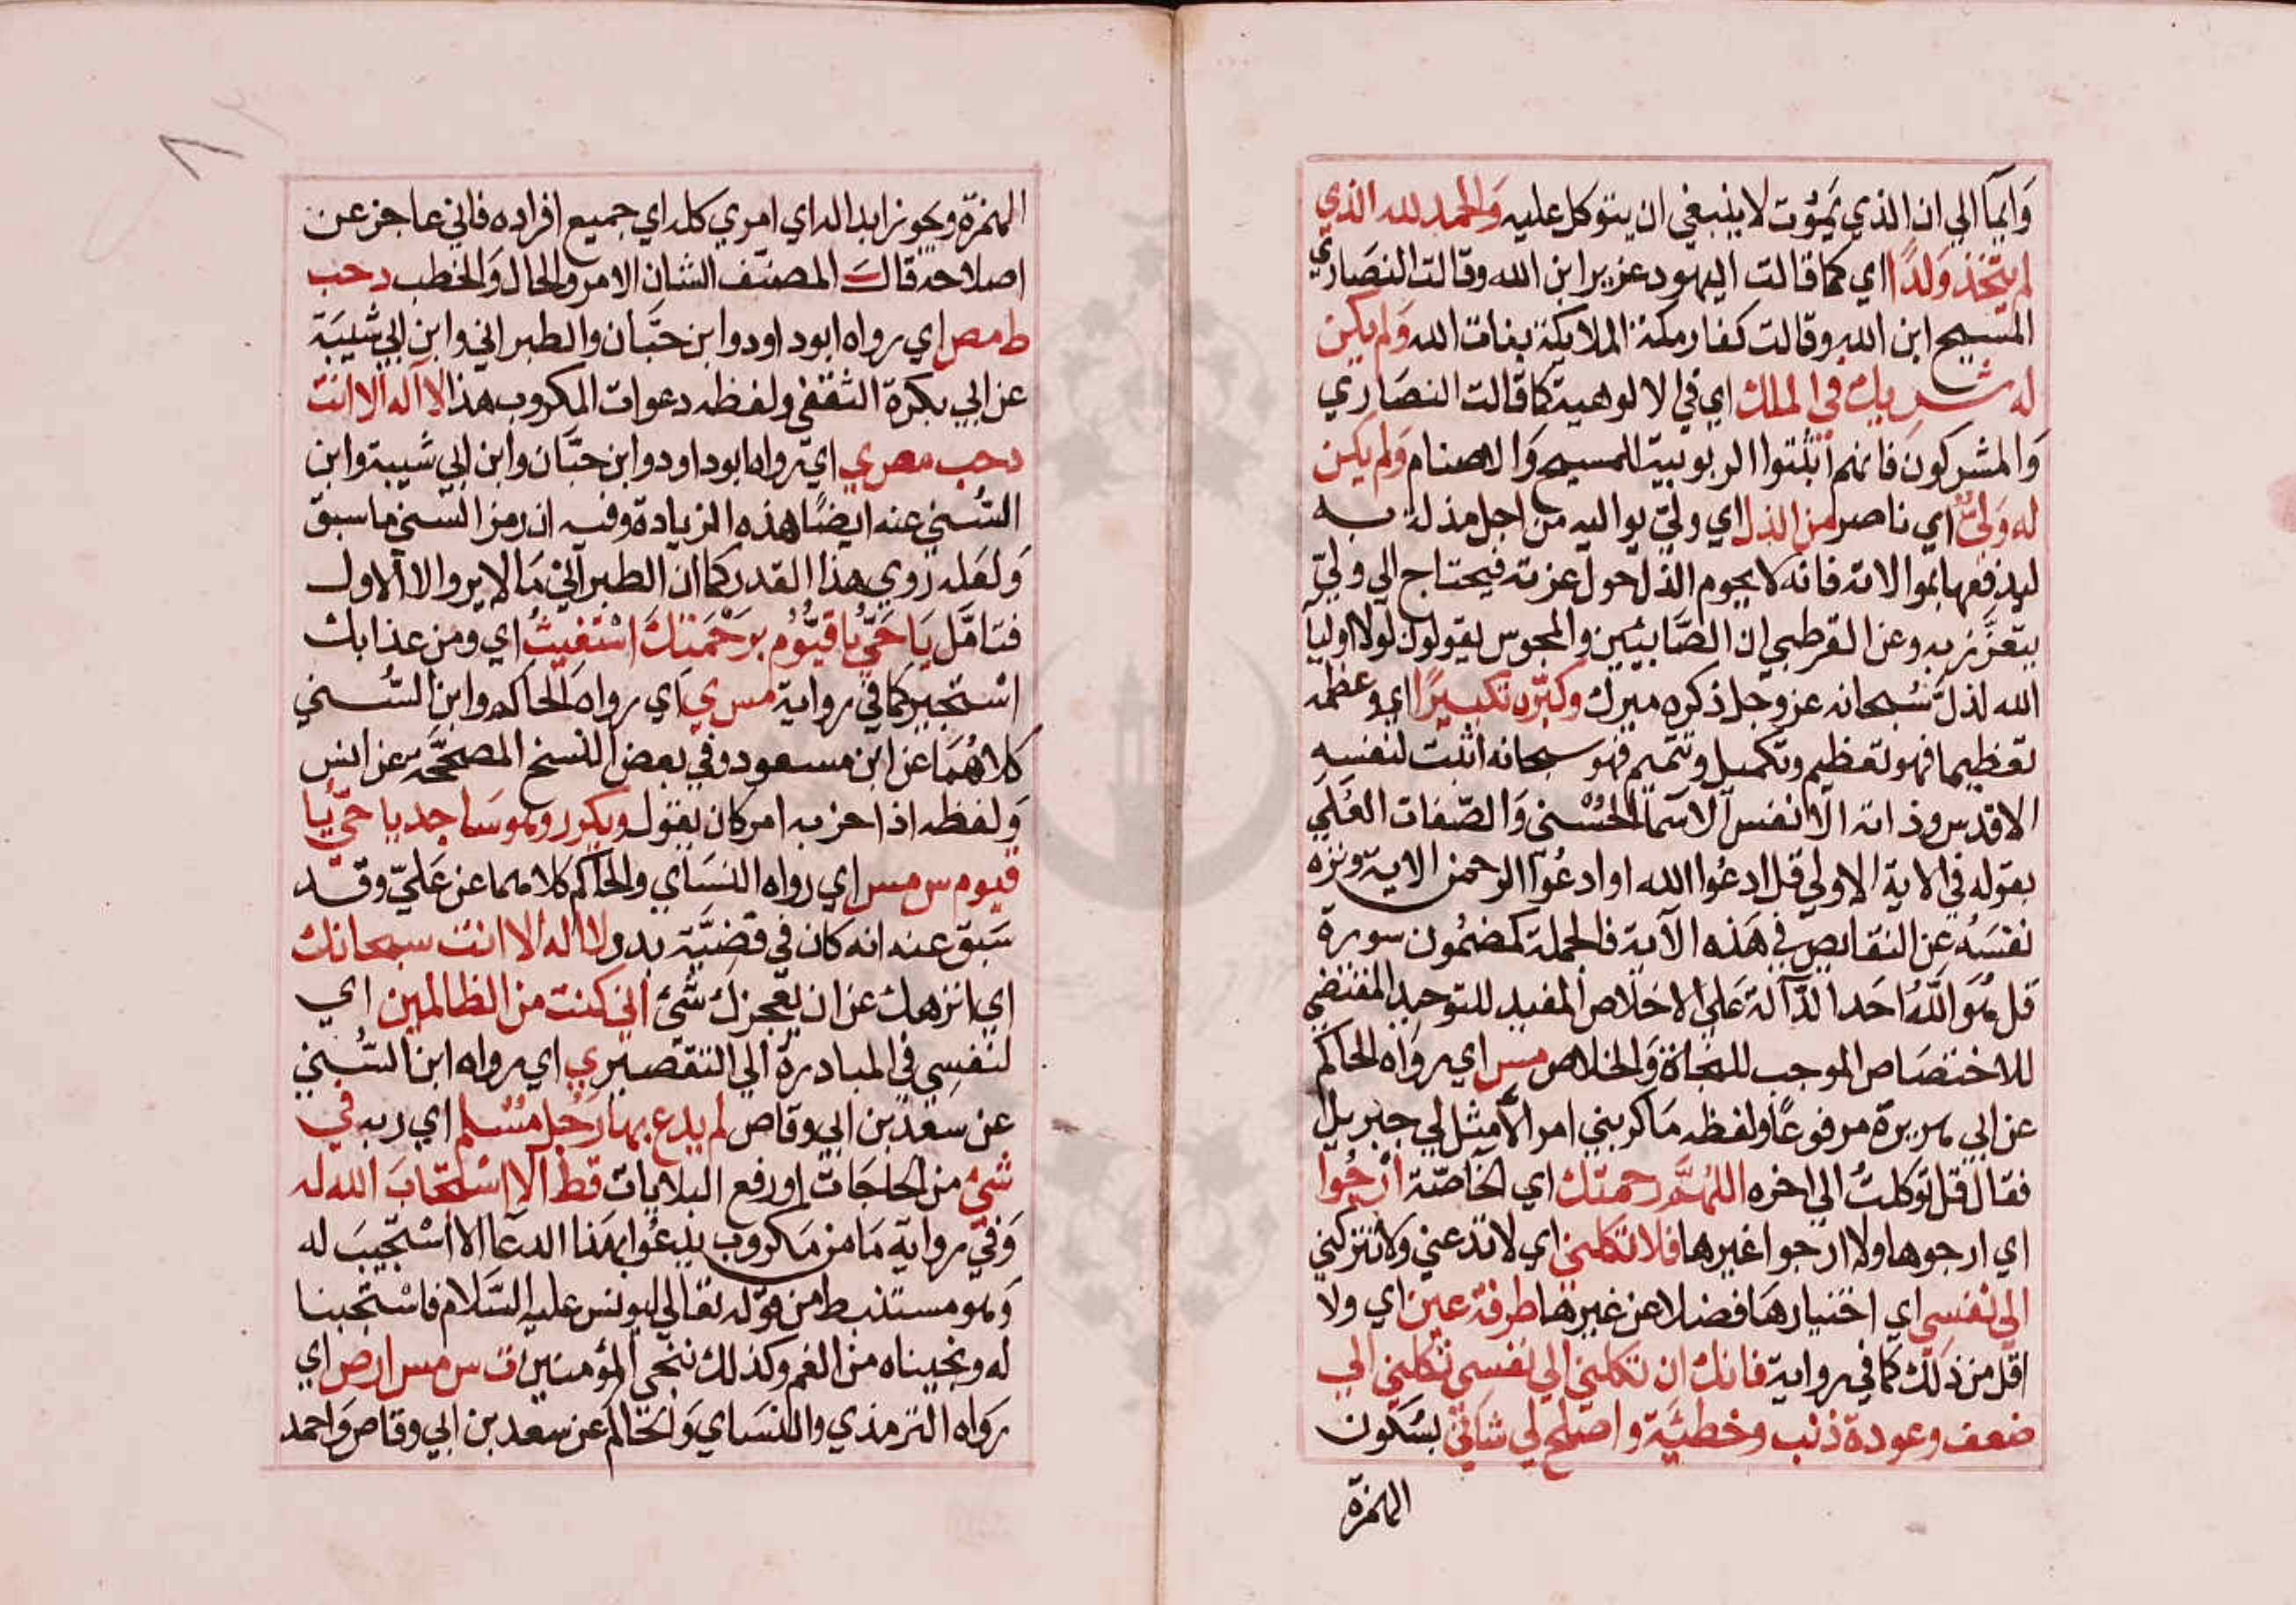 وَايمآ الي ان الذي يَمُوت لا ينبغي ان يتوكل عليه وَالحمد لله الذي
لم يتخذ وَلدًا اي كما قالت اليهود عزير ابن الله وقالت النصَاري
المسيح ابن الله وقالت كفار مكة الملايكة بنات الله وَلم يكن
له شريك في الملك اي في الالوهية كما قالت النصَاري
وَالمشركون فانهم اثبتوا الربوبية للمسيح وَالاصنام وَلم يكن
له وَليٌّ اي ناصر من الذل اي وليّ يواليه من اجل مذلة به
ليدفعها بموالاته فانه لا يحوم الذل حول عزته فيحتاج الي وليّ
يتعزّز به وعن القرطبي ان الصّابيئين والمجوس يقولون لولا اوليآ
الله لذلّ سُبحانه عز وجل ذكره وكبّره تكبيرًا اي وعظمه
تعظيما فهو تعظيم وتكميل وتتميم فهو سبحانه اثبت لنفسه
الاقدس وذاته الانفس الاسمآ الحُسْني وَالصّفات العُلَي
بقوله في الاية الاولي قل ادعُوا الله او ادعُوا الرحمن الاية ونزه
نفسَهُ عن النقايص في هَذه الآية فالجملة كمضمُون سورة
قل هُوَ اللَّهُ احَد الدّآلة عَلي الاخلاص المفيد للتوحيد المقتضي
للاختصَاص الموجب للنجاة وَالخلاص مس اي روَاه الحاكم
عن ابي هريرة مرفوعًا ولفظه مَا كربني امر الا مثل لي جبريل
فقال قل توكلتُ الي اخره اللهُمَّ رحمتك اي الخاصّة ارجُوا
اي ارجوها ولا ارجوا غيرها فلا تكلني اي لا تدعني ولا تتركني
الي نفسي اي اختيارهَا فضلا عن غيرها طرفة عين اي ولا
اقل من ذلك كما في رواية فانك ان تكلني الي نفسي تكلني الي
ضعف وعودة ذنب وخطيئَة واصلح لي شاني بسُكون
الهمزة
الهمزة ويجوز ابداله اي امري كله اي جميع افراده فاني عاجز عن
اصلاحه قالَ المصنّف الشان الامر والحال وَالخطب د حب
ط مص اي رواه ابو داود وابن حبَّان والطبراني وابن ابي شيبَة
عن ابي بكرة الثقفي ولفظه دعوات المكروب هذا لا آله الا انت
د حب مص ي اي رواه ابو داود وابن حبّان وابن ابي شيبة وابن
السُني عنه ايضًا هذه الزيادة وفيه ان رمز السني ما سبق
وَلعَله رَوي هذا القدر كما ان الطبرآني مَا لا يروالا الاول
فتامَّل يَا حَيُّ يا قيُّوُم برَحْمَتكَ اسْتَغيثُ اي ومن عذابك
اسْتجير كما في رواية مس ي اي رواه الحاكم وابن السُني
كلاهُمَا عن ابن مسعود وفي بعض النسخ المصححَّة عن انس
وَلفظه اذا حزبه امر كان يقول ويكرر وهو سَاجد يا حيّ يُا
قيوم س مس اي رواه النسَاي والحاكم كلاهما عن عَليّ وقد
سَبق عنه انه كان في قضيَّة بدر لا اله الا انت سبحانك
اي انزهك عن ان يعجزك شيئ اني كنت من الظالمين اي
لنفسِي في المبادرة الي التقصير ي اي رواه ابن السُني
عن سعد بن ابي وقاص لم يدع بها رَجُل مسْلم اي ربه في
شيئ من الحاجَات او رفع البلايات قط الا اسْتجابَ الله له
وَفي رواية مَا من مَكروب يدعُوا بهذا الدعا الا اسْتجيبَ له
وَهو مستنبط من قوله تعالي ليونس عليه السَّلام فاسْتجبنا
له ونجيناه من الغم وكذلك ننجي المؤمنين ت س مس ا ر ص اي
رَواه الترمذي والنسَاي وَالحاكم عن سعد بن ابي وقاص وَاحمد
٨